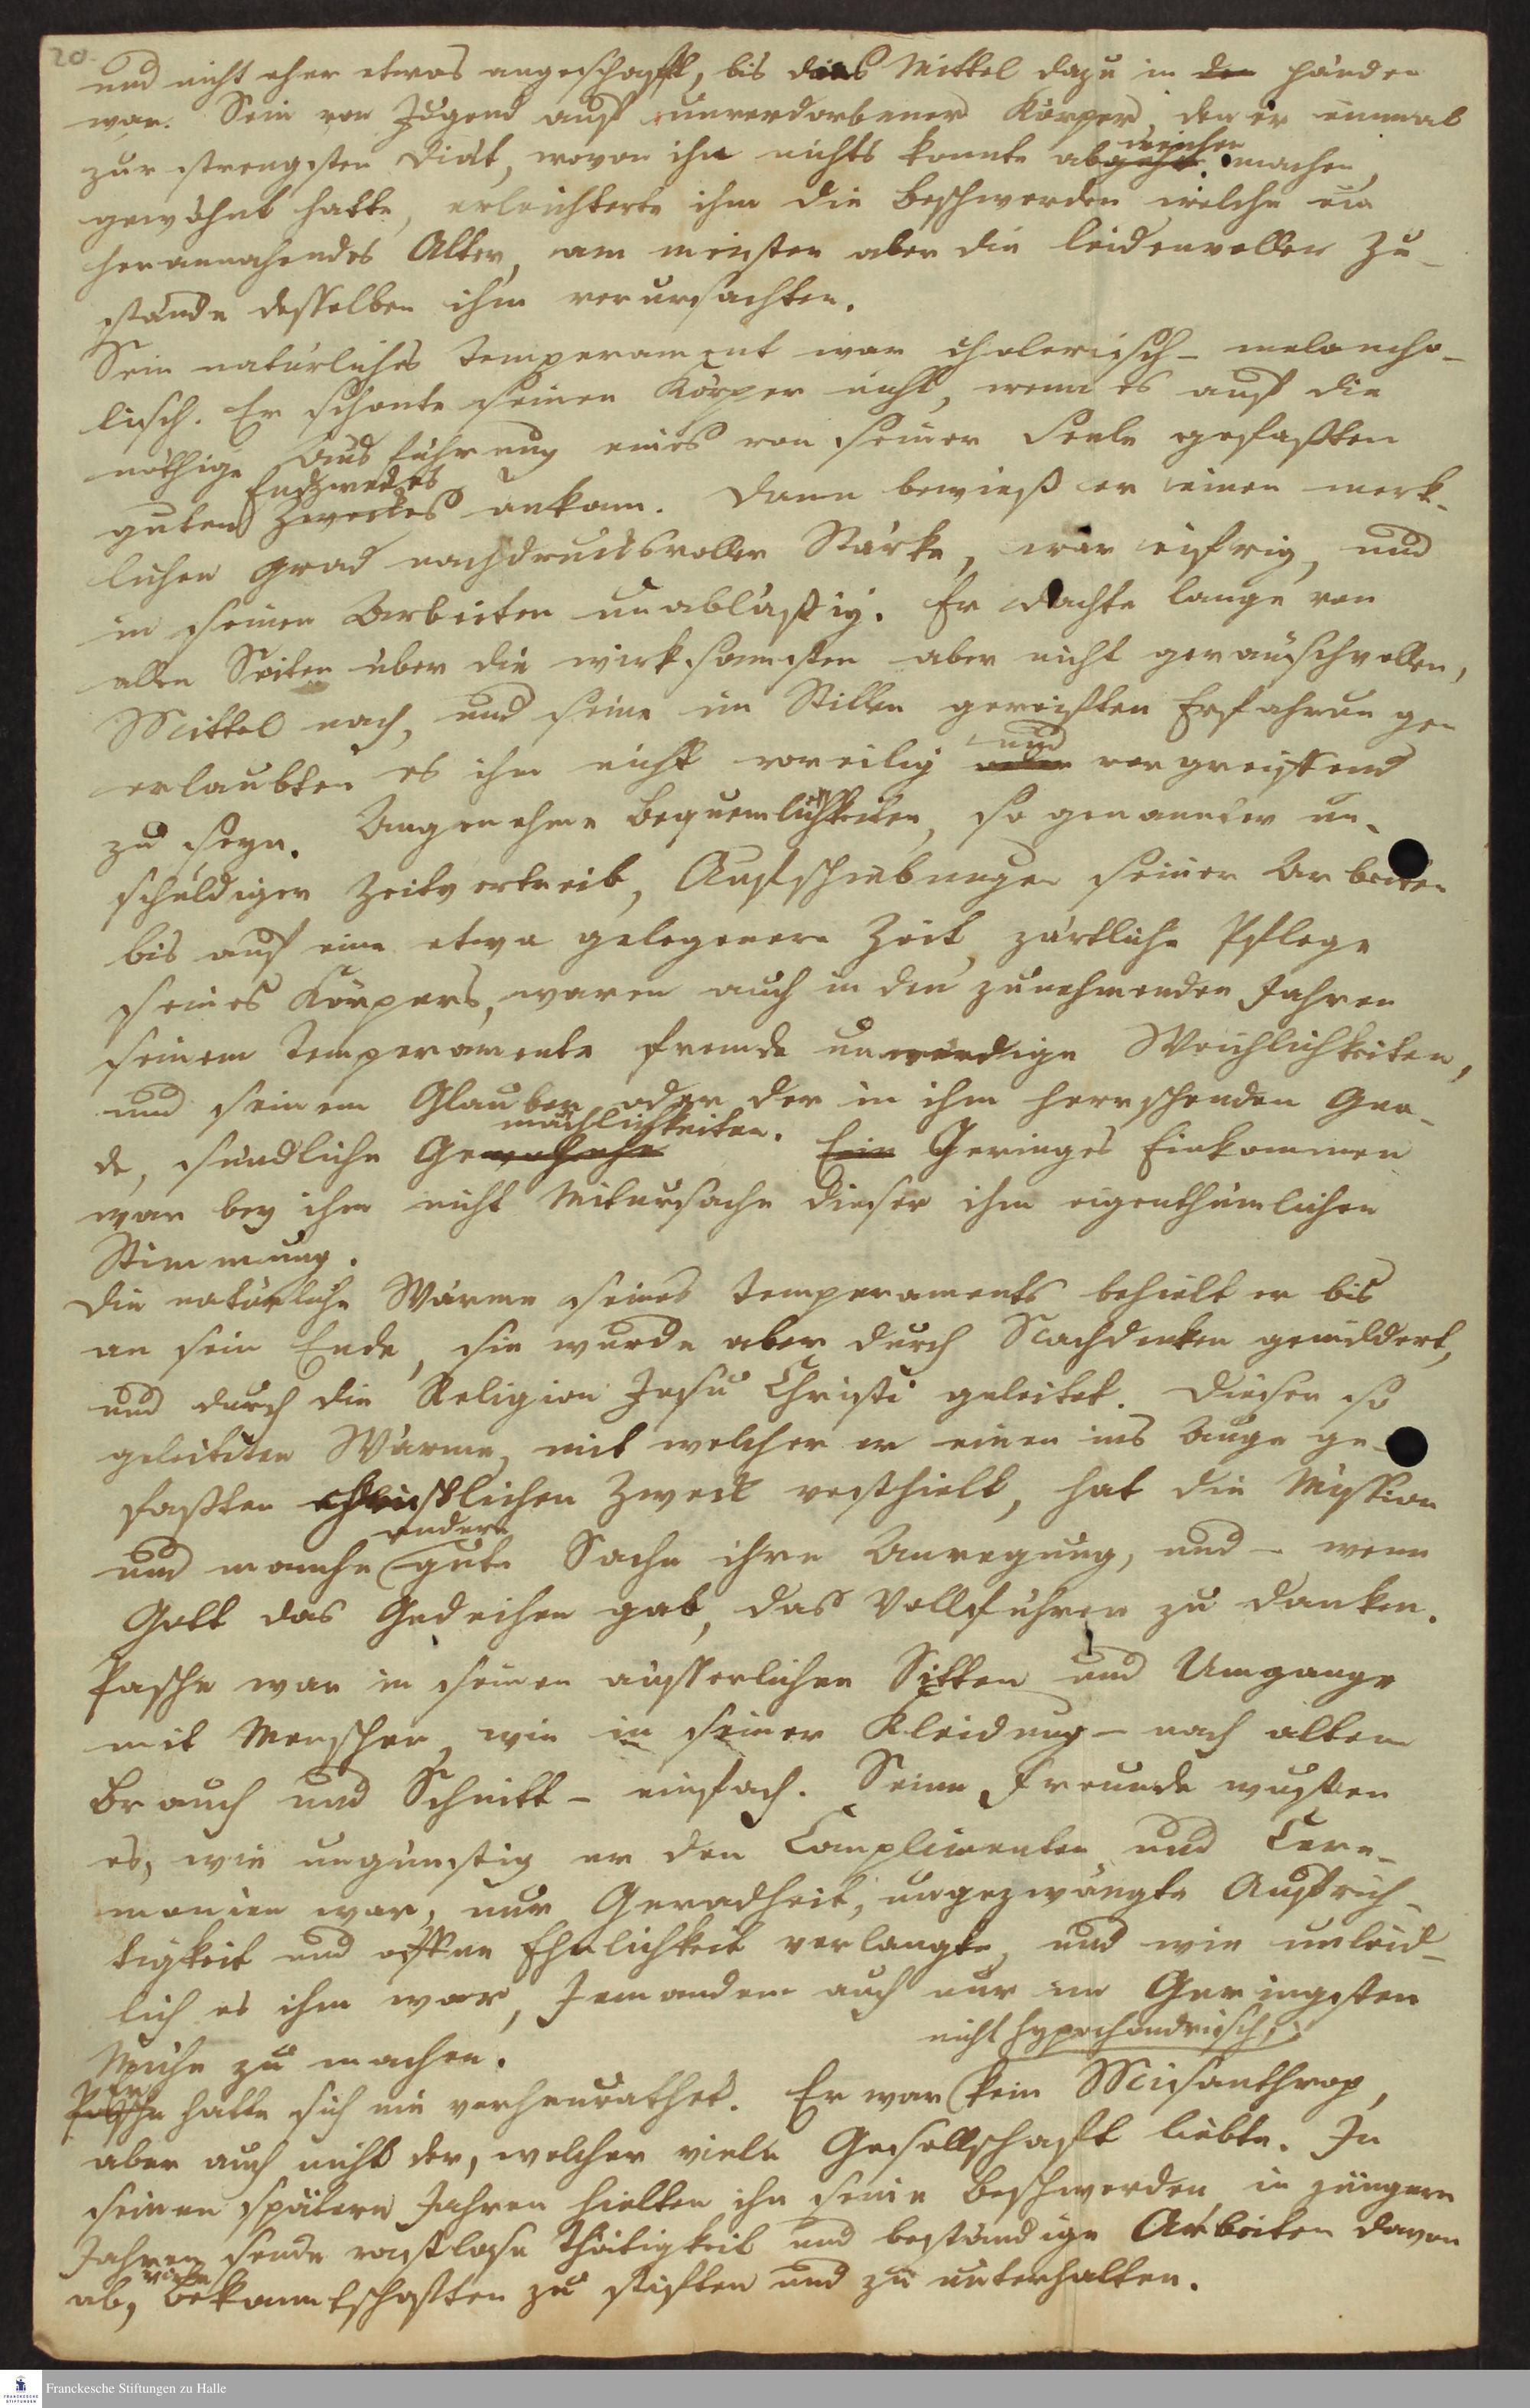 20.
und nicht eher etwas angeschafft, bis das Mittel dazu in den Händen
war. Sein von Jugend auf unverdorbener Körper, den er einmal
zur strengsten Diät, wovon ihn nichts konnte abweichen machen,
gewöhnt hatte, erleichterte ihm die Beschwerden welche ein
herannahendes Alter, am meisten aber die leidenvollen Zu-
stände desselben ihm verursachten.
Sein natürliches Temperament war cholerisch-melancho-
lisch. Er schonte seinen Körper nicht, wenn es auf die
nöthige Ausführung eines von seiner Seele gefaßten
Endzweckes
guten Zweckes ankam. Dann bewieß er einen merk-
lichen Grad nachdrucksvoller Stärke, war eifrig, und
in seinen Arbeiten unabläßig. Er dachte lange von
allen Seiten über die wirksamsten aber nicht geräuschvollen,
Mittel nach, und seine im Stillen gereiften Erfahrungen
und
erlaubten es ihm nicht voreilig oder vorgreiffend
zu seyn. Angenehme Bequemlichkeiten, so genannter un-
schuldiger Zeitvertreib, Aufschiebungen seiner Arbeiten
bis auf eine etwa gelegenere Zeit, zärtliche Pflege
seines Körpers, waren auch in den zunehmenden Jahren
seinem Temperamente fremde unwürdige Weichlichkeiten,
und seinem Glauben oder der in ihm herrschenden Gna-
mächlichkeiten.
de, sündliche Ge Ein Geringes Einkommen
war bey ihm nicht Mitursache dieser ihm eigenthümlichen
Stimmung.
Die natürliche Wärme seines Temperaments behielt er bis
an sein Ende, sie wurde aber durch Nachdenken gemildert,
und durch die Religion Jesu Christi geleitet. Dieser so
geleiteten Wärme, mit welcher er einen ins Auge ge-
faßten christlichen Zweck vesthielt, hat die Mission
andere
und manche gute Sache ihre Anregung, und – wenn
Gott das Gedeihen gab, das Vollführen zu danken.
Pasche war in seinen äusserlichen Sitten und Umgange
mit Menschen, wie in seiner Kleidung – nach altem
Brauch und Schnitt – einfach. Seine Freunde wußten
es, wie ungünstig er den Complimenten und Cere-
monien war, nur Geradheit, ungezwängte Aufrich-
tigkeit und offene Ehrlichkeit verlangte, und wie unleid-
lich es ihm war, Jemandem auch nur im Geringsten
Mühe zu machen.
nicht hypochondrisch,
Er
Pasche hatte sich nie verheurathet. Er war kein Misanthrop,
aber auch nicht der, welcher viele Gesellschaft liebte. In
seinen spätern Jahren hielten ihn seine Beschwerden, in jüngern
Jahren seine rastlose Thätigkeit und beständige Arbeiten davon
viele
ab, Bekanntschaften zu stiften und zu unterhalten.
Franckesche Stiftungen zu Halle
FRANCKESCHE STIFTUNGEN